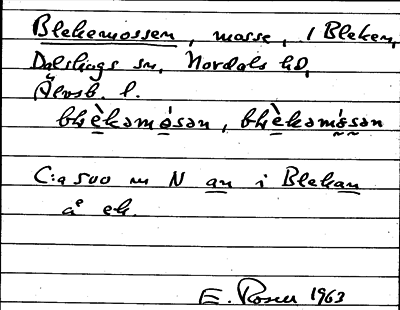 Blekemossen, mosse, i Bleken,
Dalskogs sn, Nordals hd,
Älvsb. l.
blè̱kəmò̱sən, blè̱kəmó̱sən
C:a 500 m N an i Blekan
å ek.
E. Rosen 1963